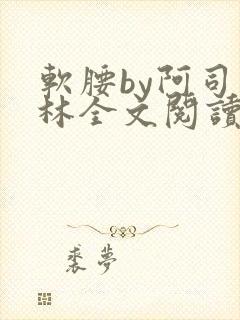 軟腰by阿司
林全文閱讀
裘夢